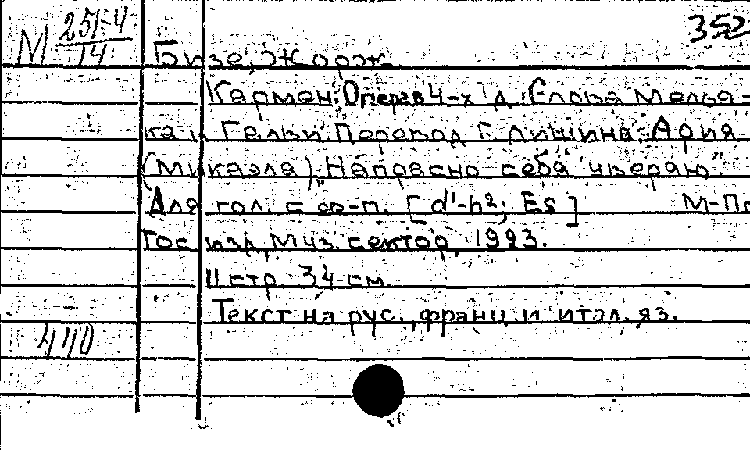 352
М 251-4
14
Бизе, Жорж.
Кармен. Опера в 4-х д. Слова Мелья-
ка и Гальви. Перевод Г. Лишина. Ария
(Микаэла) „Напрасно себя уверяю"
Для гол. с ф-п. [d¹-h²; Es] М-Пг
Гос. изд. Муз. сектор, 1923.
11 стр. 34 см.
Текст на рус., франц. и итал. яз.
440